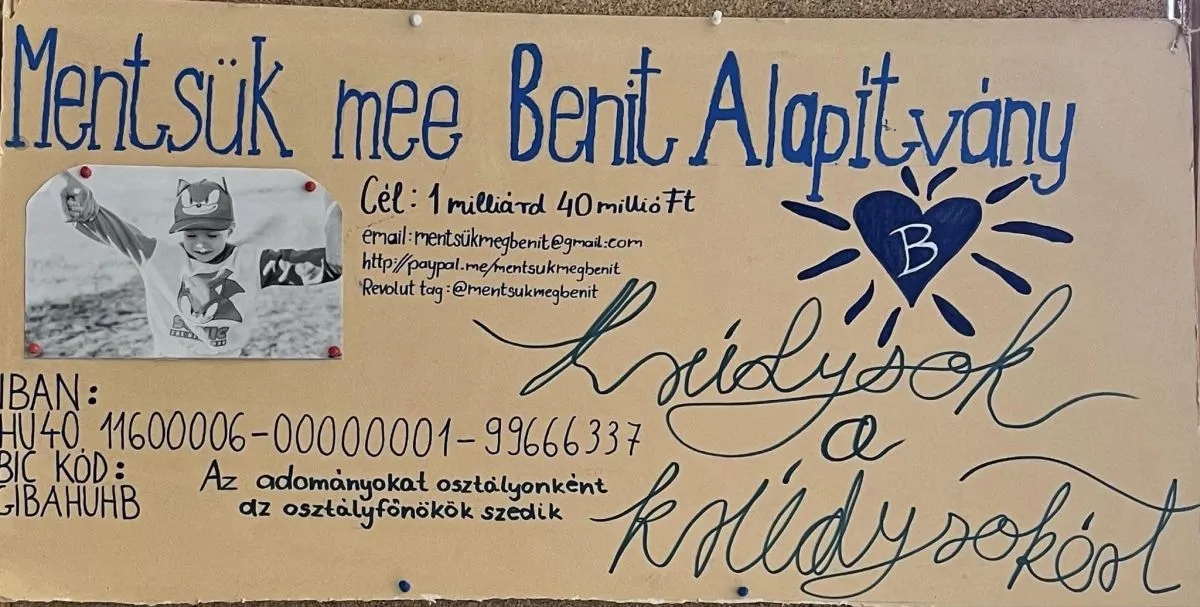 Mentsük mee Benit Alapítvány
Cél: 1 milliárd 40 millió Ft
email: mentsükmegbenit@gmail.com
http://paypal.me/mentsukmegbenit
Revolut tag: @mentsukmegbenit
B
Krúdysok
a
krúdysokért
IBAN:
HU40 11600006-00000001-99666337
BIC KÓD:
GIBAHUHB
Az adományokat osztályonként
az osztályfőnökök szedik